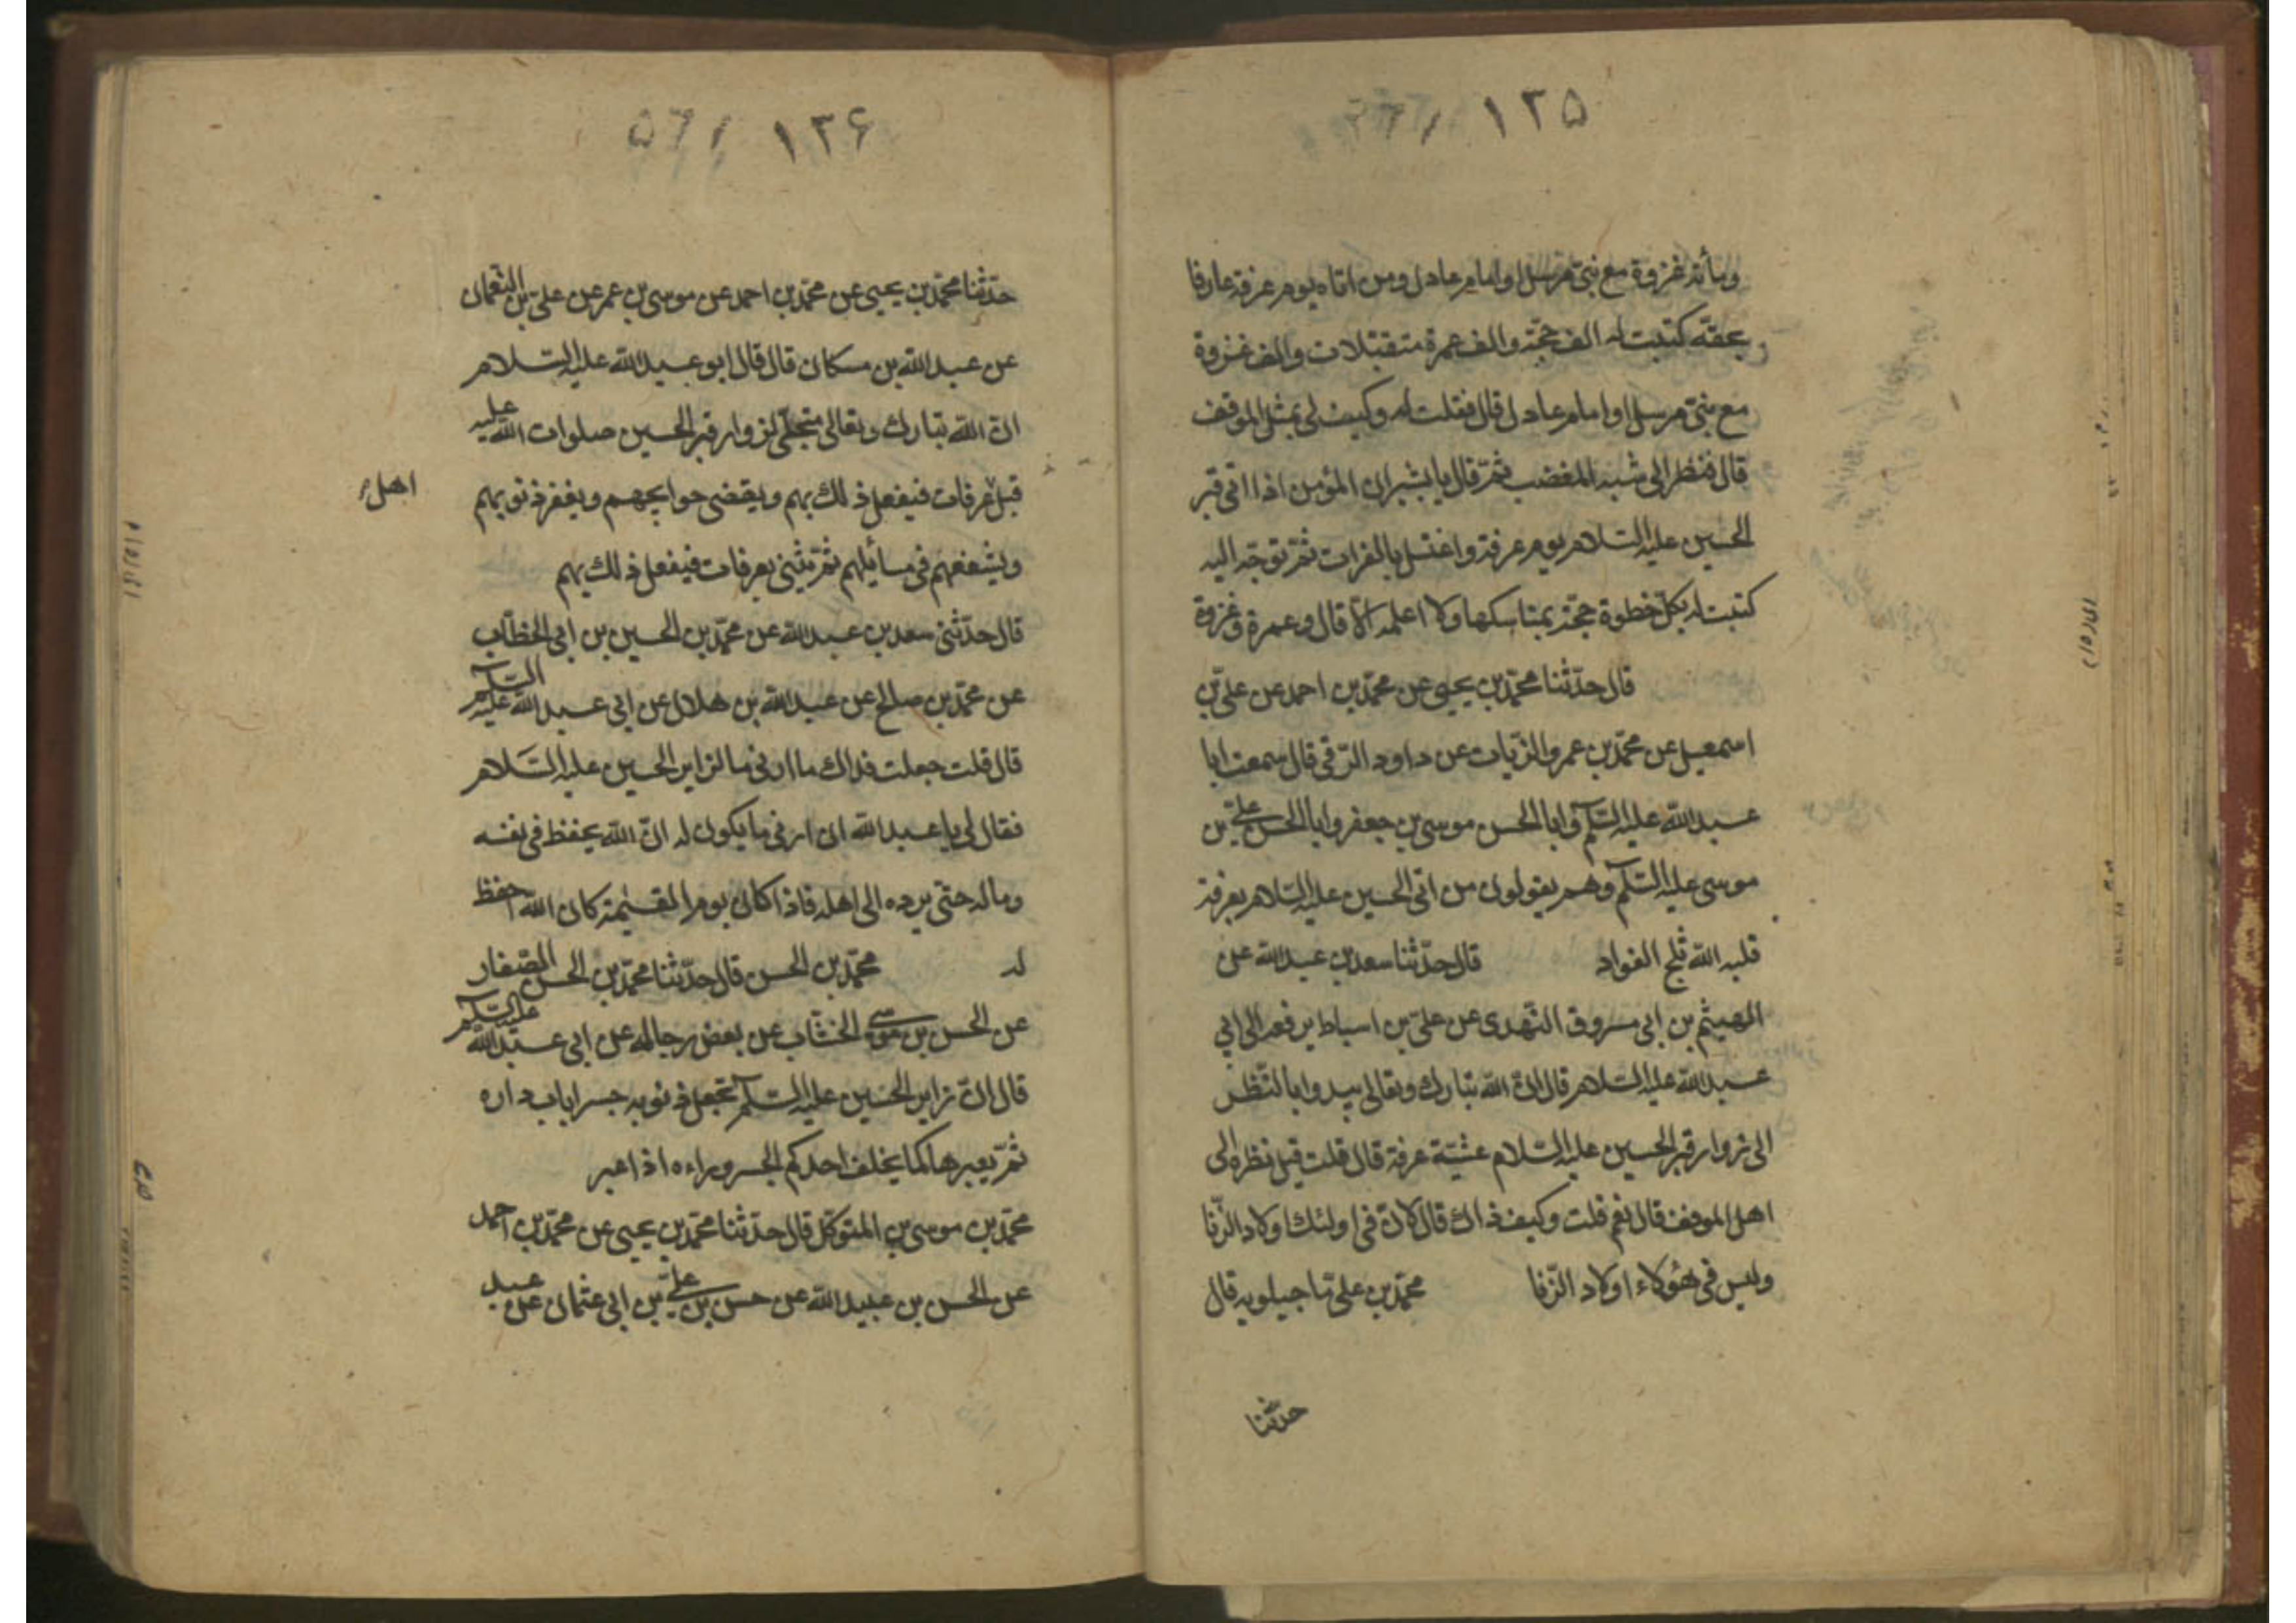 ١٢٥
ومأته غزوة مع نبى مرسل او امام عادل ومن اتاه يوم عرفة عارفا
بحقه كتبت له الف حجة والف عمرة متقبلات والف غزوة
مع نبى مرسل او امام عادل قال فقلت له وكيف لى بمثل الموقف
قال فنظر الى شبه المغضب ثم قال يا بشير ان المؤمن اذا اتى قبر
الحسين عليه السلام يوم عرفة واغتسل بالفرات ثم توجه اليه
كتبت له بكل خطوة حجة بمناسكها ولا اعلمه الا قال وعمرة وغزوة
قال حدثنا محمد بن يحيى عن محمد بن احمد عن على بن
اسمعيل عن محمد بن عمرو الزيات عن داود الرقى قال سمعت ابا
عبد الله عليه السلم وابا الحسن موسى بن جعفر وابا الحسن على بن
موسى عليه السلم وهم يقولون من اتى الحسين عليه السلام بعرفة
قلبه الله ثلج الفواد قال حدثنا سعد بن عبد الله عن
الهيثم بن ابى مسروق النهدى عن على بن اسباط يرفعه الى ابى
عبد الله عليه السلام قال ان الله تبارك وتعالى يبدوا بالنظر
الى زوار قبر الحسين عليه السلام عشية عرفة قال قلت قبل نظره الى
اهل الموقف قال نعم قلت وكيف ذاك قال لان فى اولئك اولاد الزنا
وليس فى هؤلاء اولاد الزنا محمد بن على ماجيلويه قال
حدثنا
١٢۶
حدثنا محمد بن يحيى عن محمد بن احمد عن موسى بن عمر عن على بن النعمان
عن عبد الله بن مسكان قال قال ابو عبد الله عليه السلام
ان الله تبارك وتعالى متجلى لزوار قبر الحسين صلوات الله عليه
قبل عرفات فيفعل ذلك بهم ويقضى حوايجهم ويغفر ذنوبهم
اهل
ويشفعهم فى مسايلهم ثم يثنى بعرفات فيفعل ذلك بهم
قال حدثنى سعد بن عبد الله عن محمد بن الحسين بن ابى الخطاب
عن محمد بن صالح عن عبد الله بن هلال عن ابى عبد الله عليه السلم
قال قلت جعلت فداك ما ادنى ما لزاير الحسين عليه السلام
فقال لى يا عبد الله ان ادنى ما يكون له ان الله يحفظ فى نفسه
وماله حتى يرده الى اهله فاذا كان يوم القيمة كان الله احفظ
له محمد بن الحسن قال حدثنا محمد بن الحسن الصفار
عن الحسن بن موسى الخشاب عن بعض رجاله عن ابى عبد الله عليه السلم
قال ان زاير الحسين عليه السلم تجعل ذنوبه جسرا باب داره
ثم يعبرها كما يخلف احدكم الجسر وراءه اذا عبر
محمد بن موسى بن المتوكل قال حدثنا محمد بن يحيى عن محمد بن احمد
عن الحسن بن عبيد الله عن حسن بن على بن ابى عثمان عن عبد